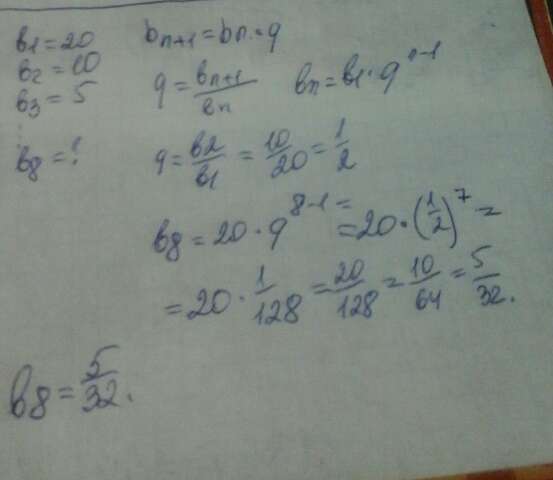 b₁ = 20
b₂ = 10
b₃ = 5
⋮
b₈ = ?
bₙ₊₁ = bₙ · q
q = bₙ₊₁/bₙ bₙ = b₁ · qⁿ⁻¹
q = b₂/b₁ = 10/20 = 1/2
b₈ = 20 · q⁸⁻¹ = = 20 · (1/2)⁷ =
= 20 · 1/128 = 20/128 = 10/64 = 5/32.
b₈ = 5/32.